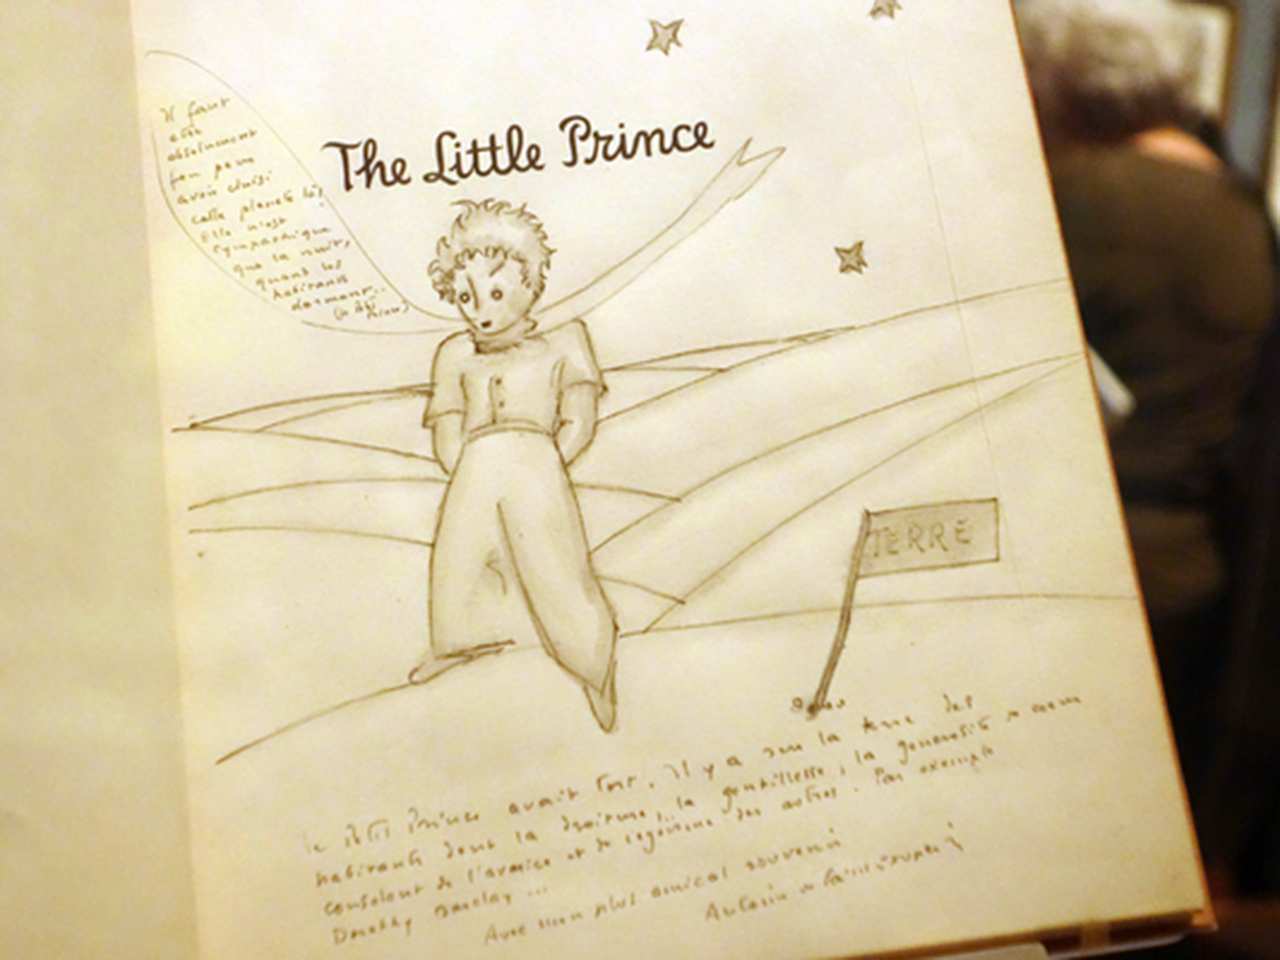 Il faut
être
absolument
fou pour
avoir choisi
cette planète là!
Elle n'est
sympathique
que la nuit,
quand les
habitants
dorment..
The Little Prince
TERRE
Le Petit Prince avait tort. Il y a sur la terre des
habitants dont la droiture, la gentillesse, la générosité de cœur
consolent de l'avarice et de l'égoïsme des autres. Par exemple
Dorothy Barclay ...
Avec mon plus amical souvenir
Antoine de Saint Exupéry